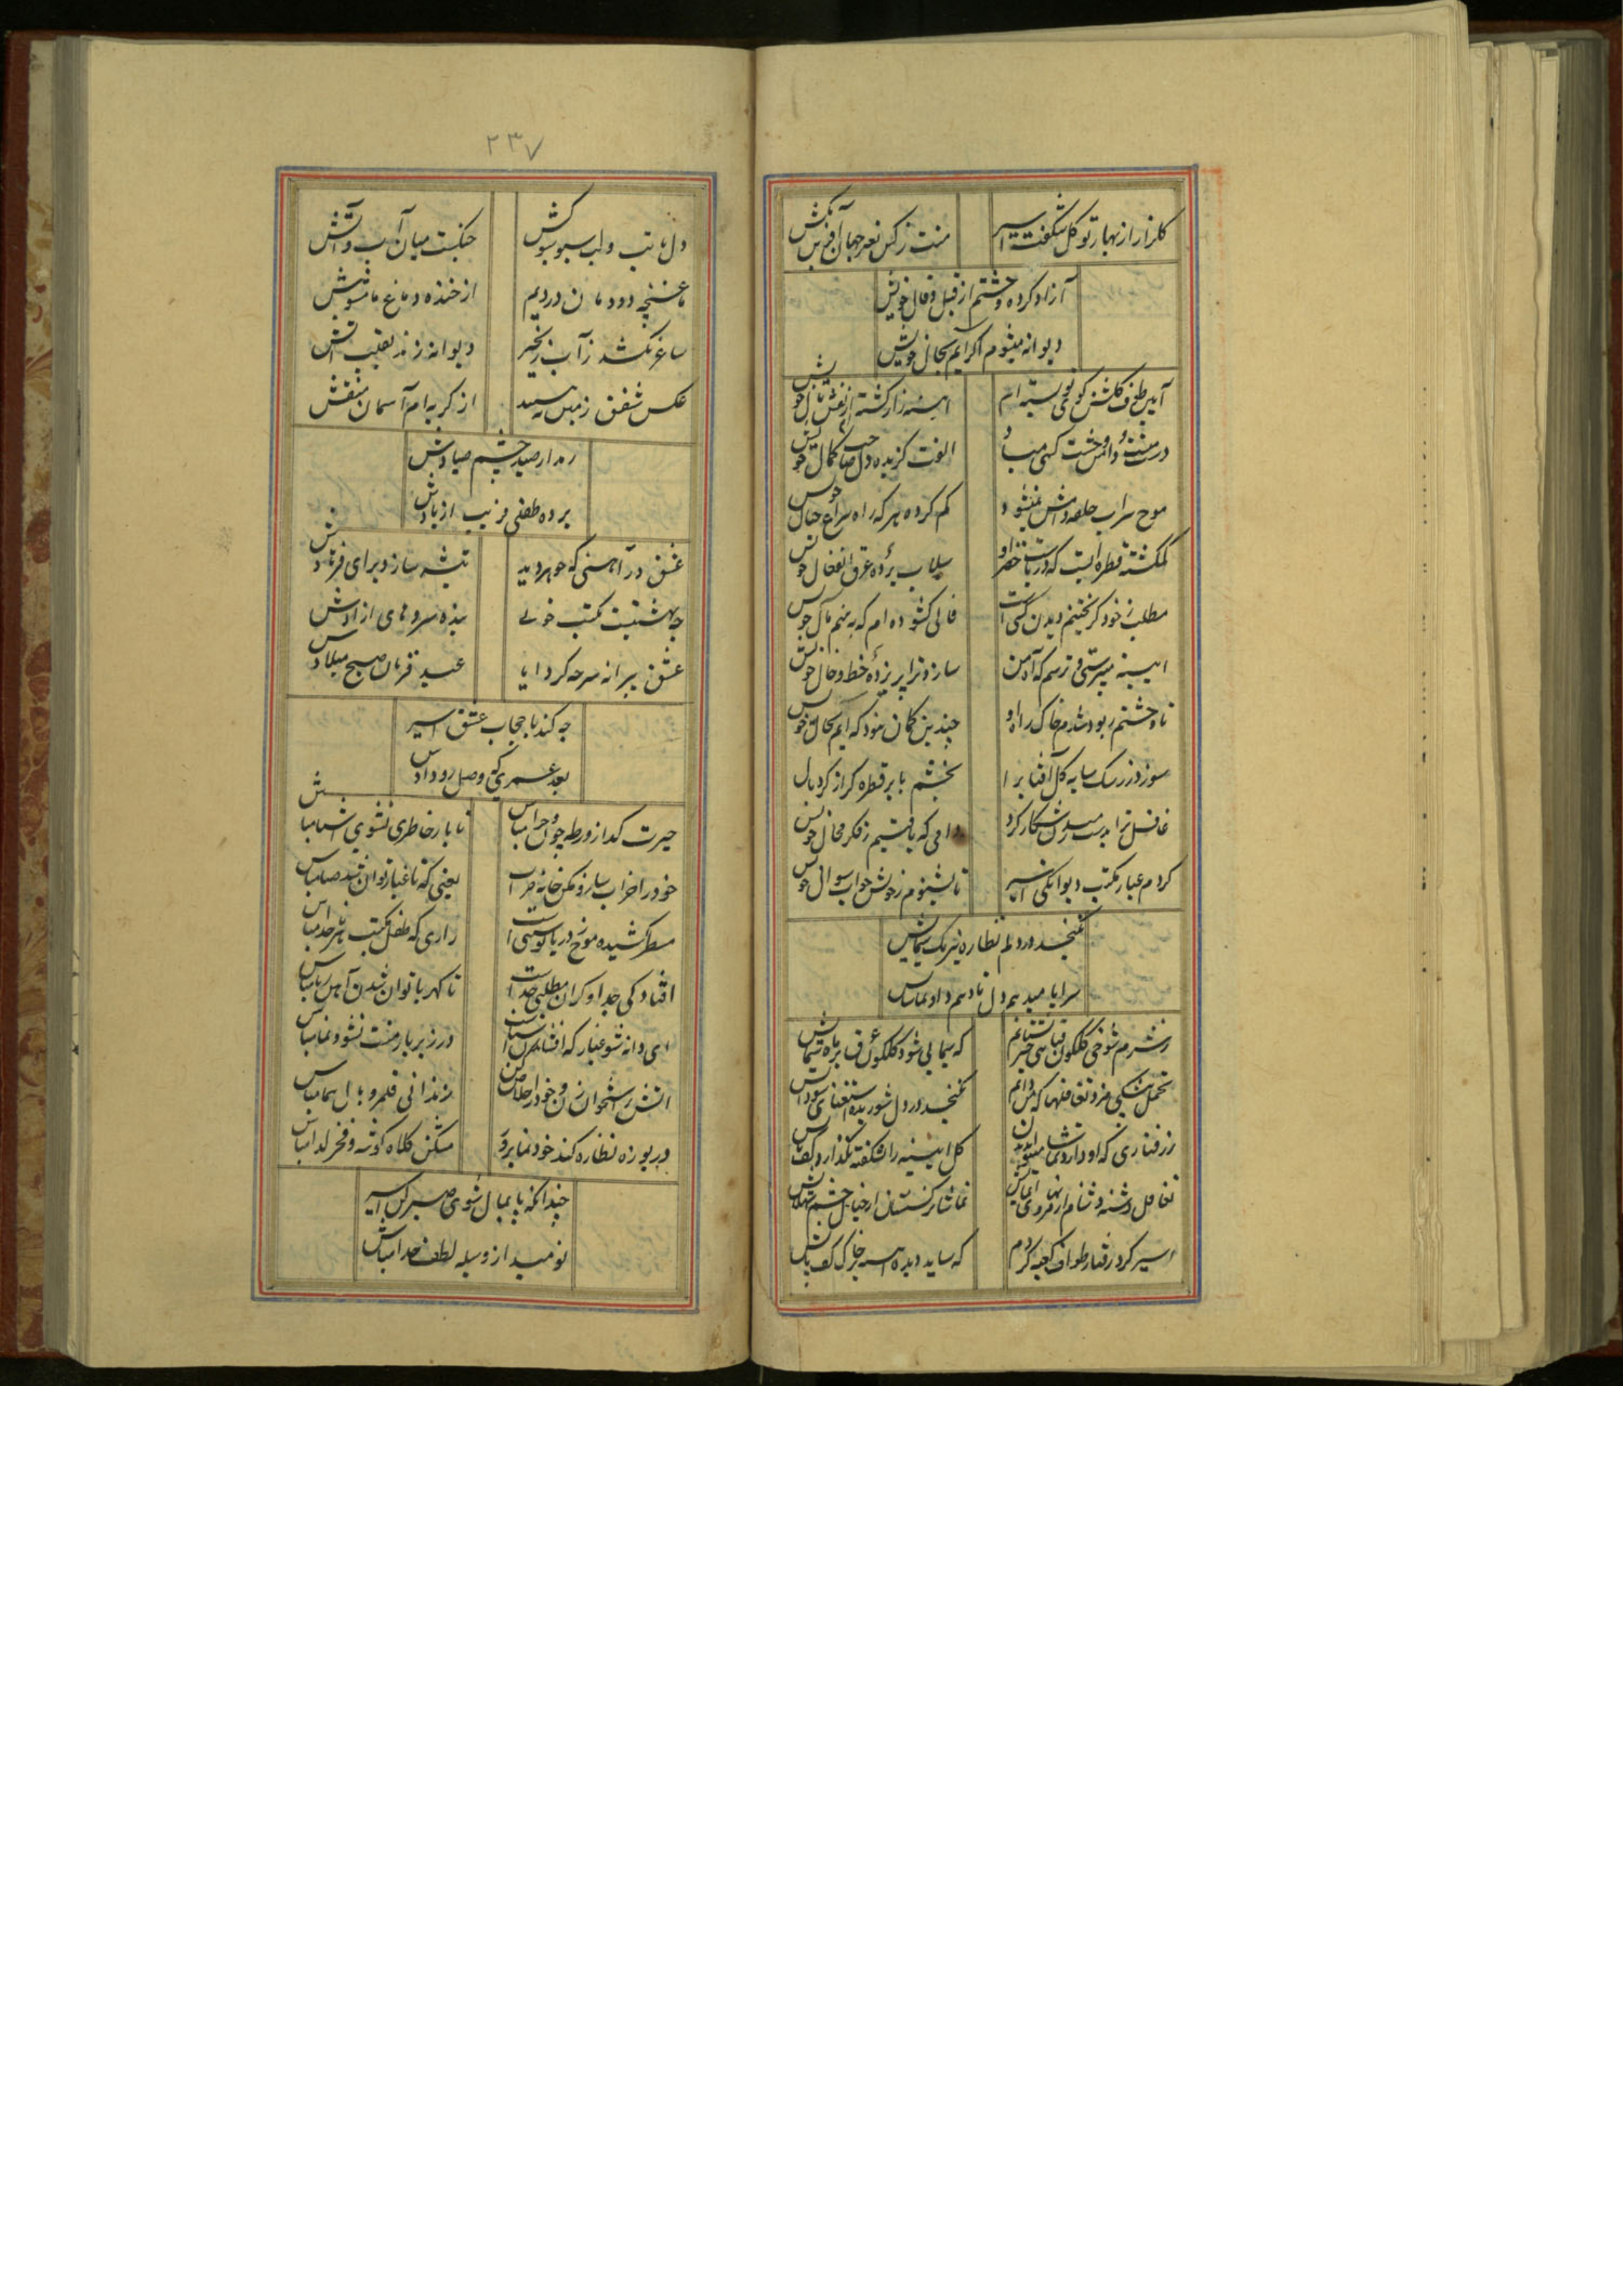 گلزار از بهار تو گل شگفت اسیر
منت ز کس نعره جهان آفرین مکش
آزاد کرده وحشتم از قیل و قال خویش
دیوانه میشوم اگر آیم بحال خویش
آیین طوف گلشن کوی تو بسته ام
آیینه زار گشته ام از نقش بال خویش
در مشت دامن وحشت کسی مباد
الفت گزیده دل صاحب کمال خویش
موج سراب حلقه دامش نمیشود
گم کرده هر که راه سراغ خیال خویش
گمگشته قطره ایست که دریاست خضر او
سیلاب برده عرق انفعال خویش
مطلب ز خود گریختنم دیدن کسی است
فالی گشوده ام که ببینم مآل خویش
آیینه میپرستی و ترسم که آه من
سازد ترا پریزده خط و خال خویش
تا وحشتم ربود شدم خاک راه او
چندین گمان نمود که آیم بحال خویش
سوزد ز رشک سایه گل آفتاب را
بخشم بابر قطره گر از گرد بال
غافل ترا بدست شکار کرد
دامی که یافتیم ز فکر محال خویش
کردم غبار مکتب دیوانگی اسیر
تا بشنوم ز خویش جواب سوال خویش
نگنجد در دلم نظاره نیرنگ سیمایش
سراپا میدهم دل تا دهم داد تماشایش
ز شرم شوخی گلگون قبا
که سیمابی شود گلگون قبا
نگنجد در دل شوریده استغنای سودایش
ز رفتاری که او دارد
گل آیینه را نشکفته نگذارد کف پایش
تغافل دشنه دشنام
تماشا نرگسستان از خیال چشم شهلایش
اسیر گرد رفتار طواف کعبه کردم
که ساید دیده آیینه بر خاک کف پایش
۲۳۷
دل با تب و لب سبو سبوکش
جنگیست میان آب و آتش
ما غنچه دودمان دردیم
از خنده دماغ ما مشوش
ساغر نکشد ز آب زنجیر
دیوانه زند نقب آتش
عکس شفق زمین
از گریه ام آسمان منقش
رم دارد صید چشم صیادش
برده طفلی فریب از یادش
عشق در آهنی که جوهر دید
تیشه سازد برای فرهادش
چه بهشتیست مکتب خوبی
بنده سروهای آزادش
عشق پیرانه سر چه کرد ایما
عید قربان صبح میلادش
چه کند با حجاب عشق اسیر
بعد عمری که وصل رو دادش
حیرت گداز ورطه چون و چرا مباش
تا بار خاطری نشوی آشنا مباش
خود را خراب ساز و مکن خانه خراب
یعنی که تا غبار توان شد صبا مباش
مسطر کشیده موج ز دریا نوشتنی است
رازی که طفل مکتب
افتادگی جدا و گران مطلبی جداست
تا کهربا توان شدن آهن ربا مباش
ای دانه شو غبار که افتادن است
در زیر بار منت نشو و نما مباش
آتش به استخوان زن و خود را خلاص کن
زندانی قلمرو بال هما مباش
دریوزه نظاره کند خودنما برو
مشکن کلاه گوشه و فخر گدا مباش
چندانکه پایمال شوی صبر کن اسیر
نومید از وسیله لطف خدا مباش